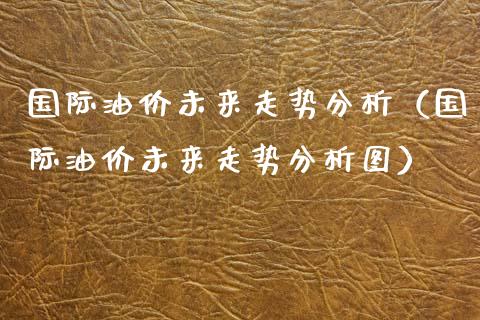 国际油价未来走势分析（国
际油价未来走势分析图）